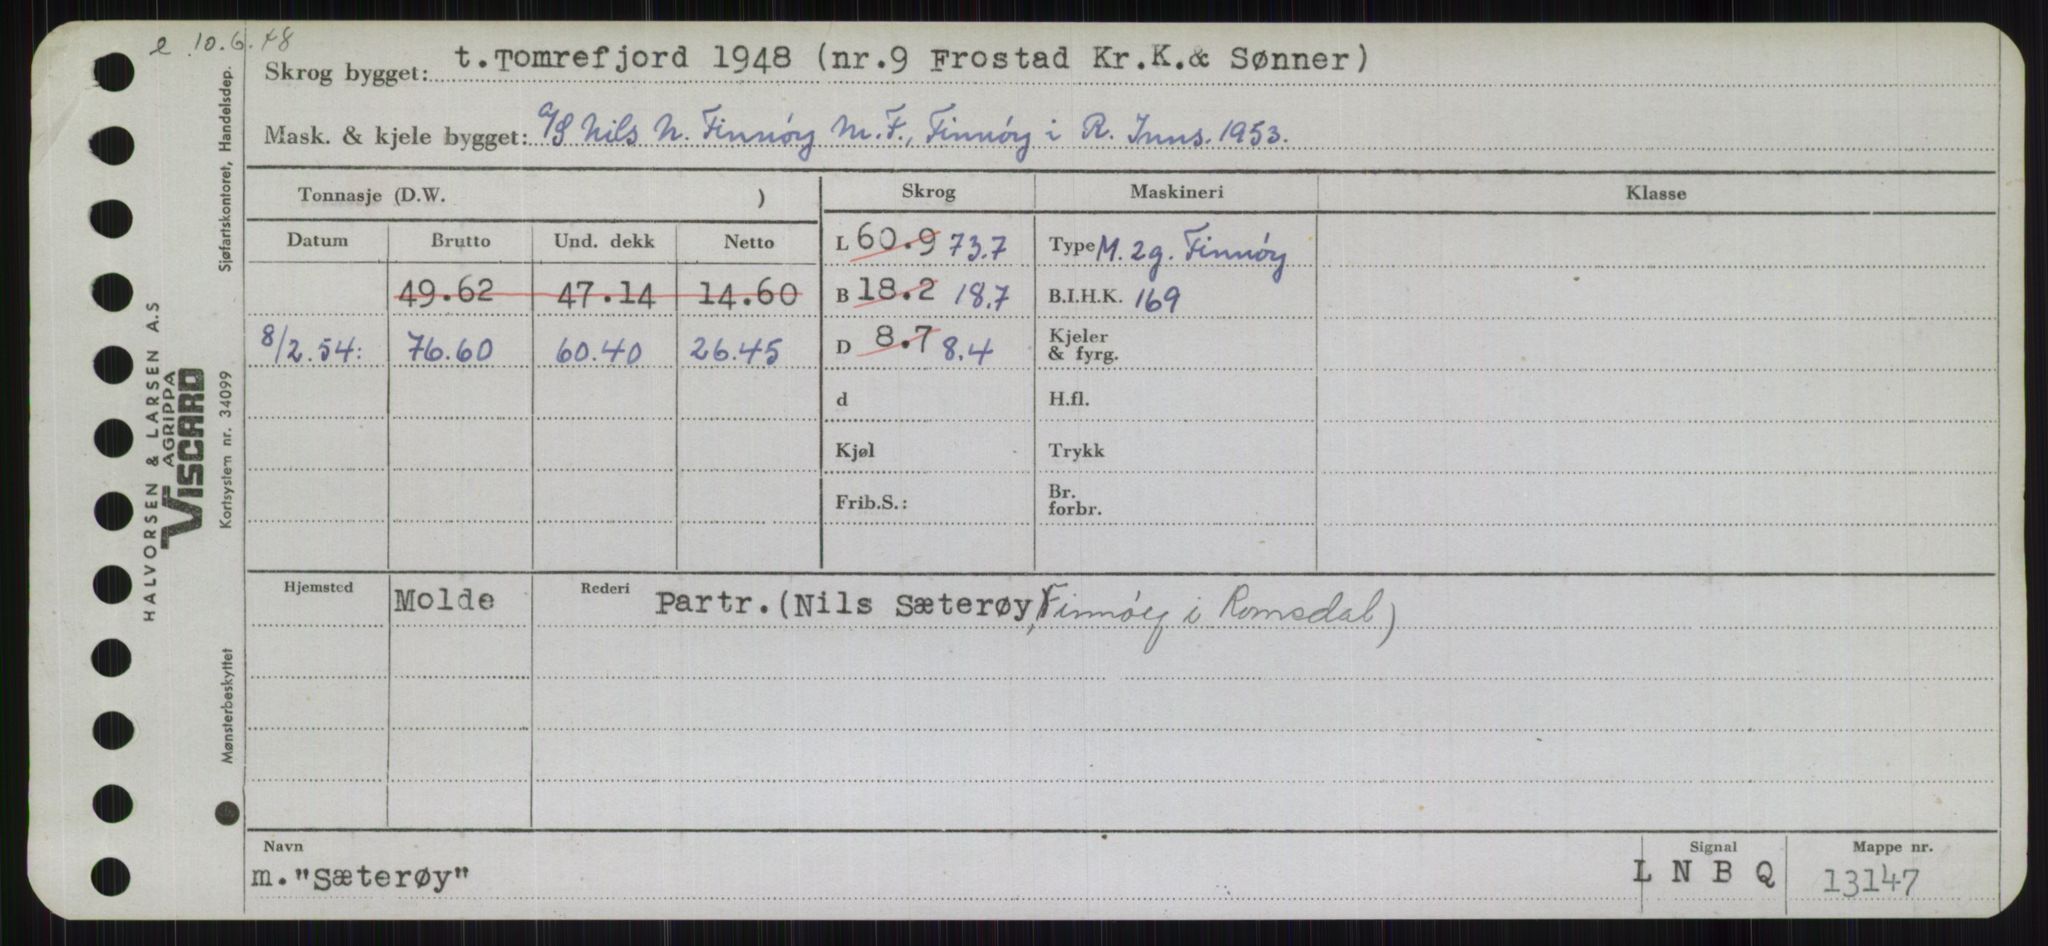 e 10.6.48
Skrog bygget: t. Tomrefjord 1948 (nr.9 Frostad Kr.K.& Sønner)
Mask. & kjele bygget: A/S Nils N. Finnöy M.F., Finnöy i R. Inns. 1953.
Tonnasje (D.W. )
Skrog
Maskineri
Klasse
Datum Brutto Und. dekk Netto
49.62 47.14 14.60
8/2.54: 76.60 60.40 26.45
L 60.9 73.7
B 18.2 18.7
D 8.7 8.4
d
Kjøl
Frib.S.:
Type M. 2g. Finnöy
B.I.H.K. 169
Kjeler
& fyrg.
H.fl.
Trykk
Br.
forbr.
Hjemsted Molde Rederi Partr. (Nils Sæterøy, Finnöy i Romsdal)
Navn
m. "Sæterøy"
Signal
L N B Q
Mappe nr.
13147
Sjøfartskontoret, Handelsdep.
HALVORSEN & LARSEN A.S
AGRIPPA
VISCARD
Kortsystem nr. 34099
Mønsterbeskyttet